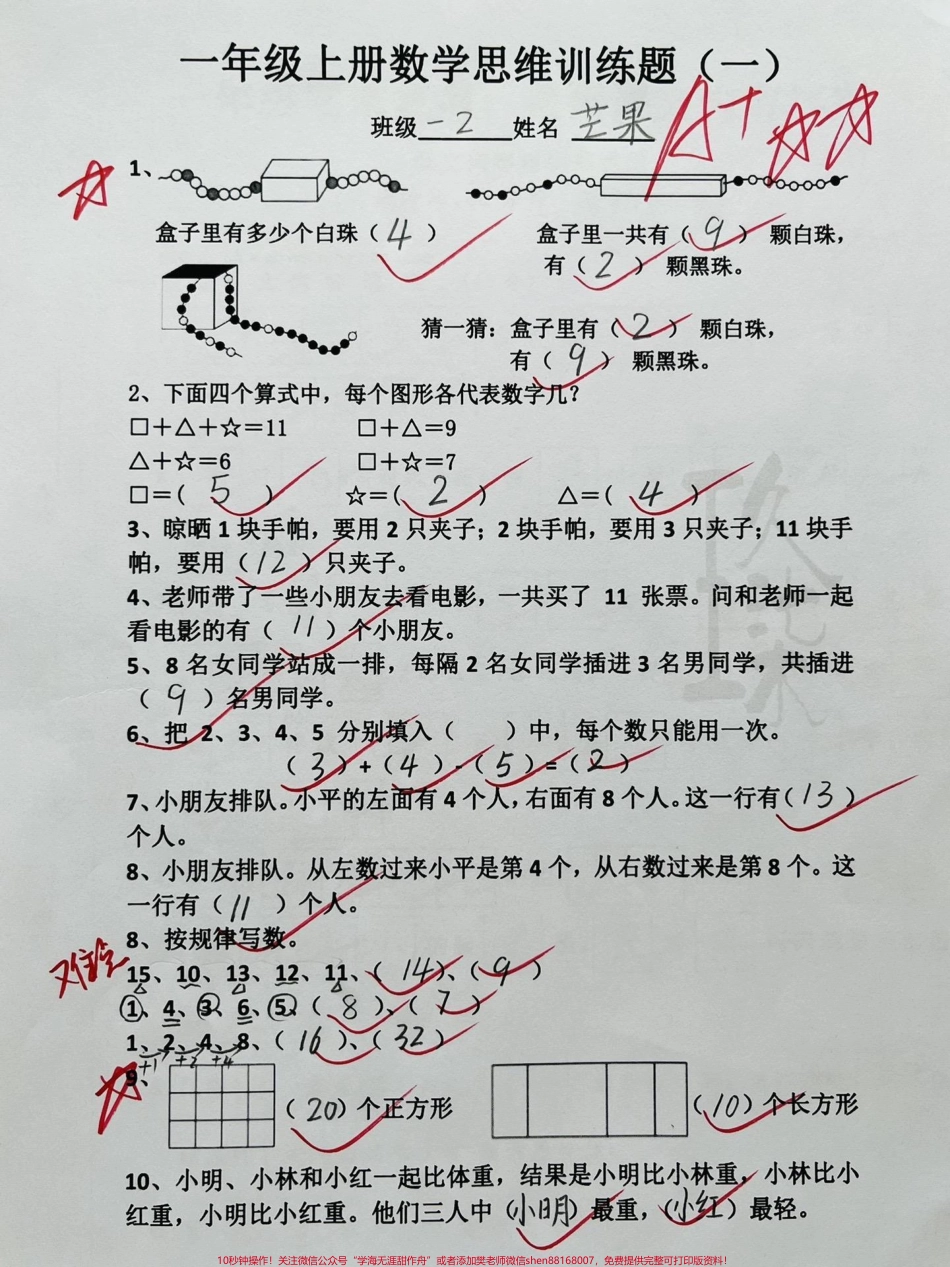 一年级上册数学思维训练题（一）
班级 一2 姓名 芒果
A+
1、
盒子里有多少个白珠（ 4 ） 盒子里一共有（ 9 ）颗白珠，
有（ 2 ）颗黑珠。
猜一猜：盒子里有（ 2 ）颗白珠，
有（ 9 ）颗黑珠。
2、下面四个算式中，每个图形各代表数字几？
□＋△＋☆＝11 □＋△＝9
△＋☆＝6 □＋☆＝7
□＝（ 5 ） ☆＝（ 2 ） △＝（ 4 ）
3、晾晒 1 块手帕，要用 2 只夹子；2 块手帕，要用 3 只夹子；11 块手
帕，要用（ 12 ）只夹子。
4、老师带了一些小朋友去看电影，一共买了 11 张票。问和老师一起
看电影的有（ 11 ）个小朋友。
5、8 名女同学站成一排，每隔 2 名女同学插进 3 名男同学，共插进
（ 9 ）名男同学。
6、把 2、3、4、5 分别填入（ ）中，每个数只能用一次。
（ 3 ）+（ 4 ）-（ 5 ）=（ 2 ）
7、小朋友排队。小平的左面有 4 个人，右面有 8 个人。这一行有（ 13 ）
个人。
8、小朋友排队。从左数过来小平是第 4 个，从右数过来是第 8 个。这
一行有（ 11 ）个人。
8、按规律写数。
15、10、13、12、11、（ 14 ）、（ 9 ）
1、4、3、6、5、（ 8 ）、（ 7 ）
1、2、4、8、（ 16 ）、（ 32 ）
+1 +2 +4
9、
（ 20 ）个正方形 （ 10 ）个长方形
10、小明、小林和小红一起比体重，结果是小明比小林重，小林比小
红重，小明比小红重。他们三人中（小明）最重，（小红）最轻。
10秒钟操作！关注微信公众号“学海无涯甜作舟”或者添加樊老师微信shen88168007，免费提供完整可打印版资料！